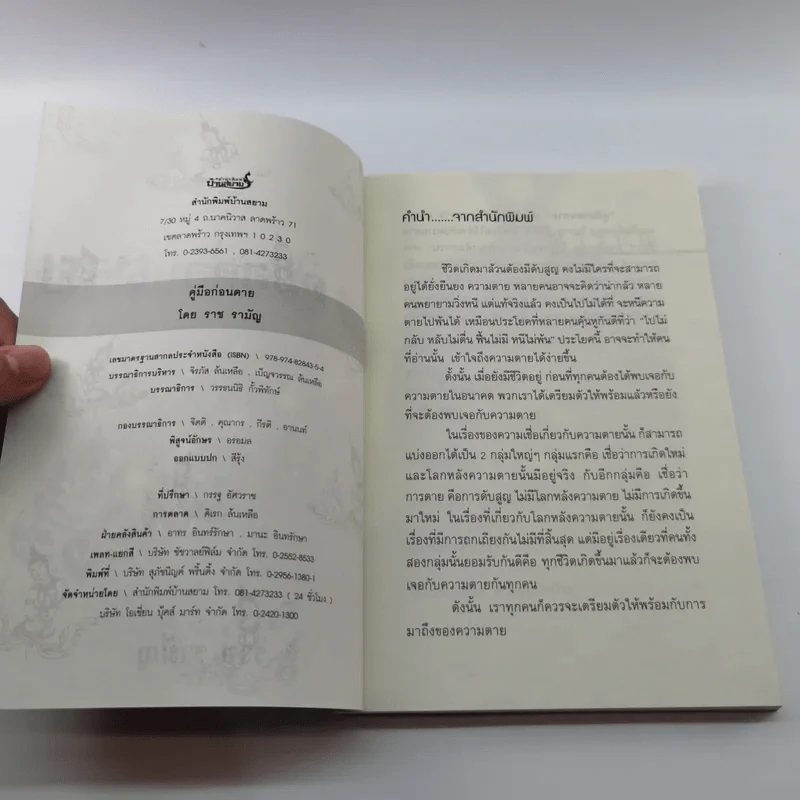 บ้านสยาม
สำนักพิมพ์บ้านสยาม
7/30 หมู่ 4 ถ.นาคนิวาส ลาดพร้าว 71
เขตลาดพร้าว กรุงเทพฯ 1 0 2 3 0
โทร. 0-2393-6561 , 081-4273233
คู่มือก่อนตาย
โดย ราช รามัญ
เลขมาตรฐานสากลประจำหนังสือ (ISBN) \ 978-974-82843-5-4
บรรณาธิการบริหาร \ จิรภัส ล้นเหลือ , เบ็ญจวรรณ ล้นเหลือ
บรรณาธิการ \ วรรธนนิธิ กั้วพิทักษ์
กองบรรณาธิการ \ จิตติ , คุณากร , กีรติ , อานนท์
พิสูจน์อักษร \ อรอมล
ออกแบบปก \ สีรุ้ง
ที่ปรึกษา \ กรรฐ อัศวราช
การตลาด \ ดิเรก ล้นเหลือ
ฝ่ายคลังสินค้า \ อาทร อินทร์รักษา , มานะ อินทรักษา
เพลท-แยกสี \ บริษัท ชัชวาลย์ฟิล์ม จำกัด โทร. 0-2552-8533
พิมพ์ที่ \ บริษัท สุภัชนิญค์ พริ้นติ้ง จำกัด โทร. 0-2956-1380-1
จัดจำหน่ายโดย \ สำนักพิมพ์บ้านสยาม โทร. 081-4273233 ( 24 ชั่วโมง )
บริษัท โอเชี่ยน บุ๊คส์ มาร์ท จำกัด โทร. 0-2420-1300
คำนำ.......จากสำนักพิมพ์
ชีวิตเกิดมาล้วนต้องมีดับสูญ คงไม่มีใครที่จะสามารถ
อยู่ได้ยั่งยืนยง ความตาย หลายคนอาจจะคิดว่าน่ากลัว หลาย
คนพยายามวิ่งหนี แต่แท้จริงแล้ว คงเป็นไปไม่ได้ที่ จะหนีความ
ตายไปพ้นได้ เหมือนประโยคที่หลายคนคุ้นหูกันดีที่ว่า "ไปไม่
กลับ หลับไม่ตื่น ฟื้นไม่มี หนีไม่พ้น" ประโยคนี้ อาจจะทำให้คน
ที่อ่านนั้น เข้าใจถึงความตายได้ง่ายขึ้น
ดั้งนั้น เมื่อยังมีชีวิตอยู่ ก่อนที่ทุกคนต้องได้พบเจอกับ
ความตายในอนาคต พวกเราได้เตรียมตัวให้พร้อมแล้วหรือยัง
ที่จะต้องพบเจอกับความตาย
ในเรื่องของความเชื่อเกี่ยวกับความตายนั้น ก็สามารถ
แบ่งออกได้เป็น 2 กลุ่มใหญ่ๆ กลุ่มแรกคือ เชื่อว่าการเกิดใหม่
และโลกหลังความตายนั้นมีอยู่จริง กับอีกกลุ่มคือ เชื่อว่า
การตาย คือการดับสูญ ไม่มีโลกหลังความตาย ไม่มีการเกิดขึ้น
มาใหม่ ในเรื่องที่เกี่ยวกับโลกหลังความตายนั้น ก็ยังคงเป็น
เรื่องที่มีการถกเถียงกันไม่มีที่สิ้นสุด แต่มีอยู่เรื่องเดียวที่คนทั้ง
สองกลุ่มนั้นยอมรับกันดีคือ ทุกชีวิตเกิดขึ้นมาแล้วก็จะต้องพบ
เจอกับความตายกันทุกคน
ดังนั้น เราทุกคนก็ควรจะเตรียมตัวให้พร้อมกับการ
มาถึงของความตาย